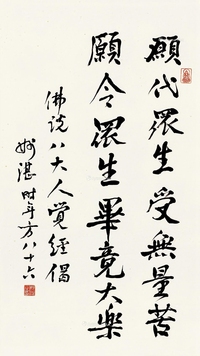 願代眾生受無量苦
願令眾生畢竟大樂
佛説八大人覺經偈
妙湛時年方八十六